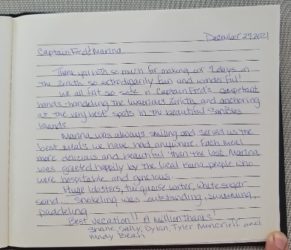 December 29, 2021
Captain Fred & Marina
Thank you both so much for making our 7 days on
the Zenith so extrodinarily fun and wonderful!
We all felt so safe in Captain Fred's competent
hands handeling the luxurious Zenith and anchoring
at the very best spots in the beautiful San Blas
Islands.
Marina was always smiling and served us the
best meals we have had anywhere. Each meal
more delicious and beautiful than the last. Marina
was greeted happily by the local Kuna people who
were hospitable and gracious.
Huge lobsters, turquoise water, white sugar
sand. Snorkeling was outstanding, swimming,
paddeling.
Best vacation!! A million thanks!
Shane, Sally, Dylan, Tyler and
Mindy Beach